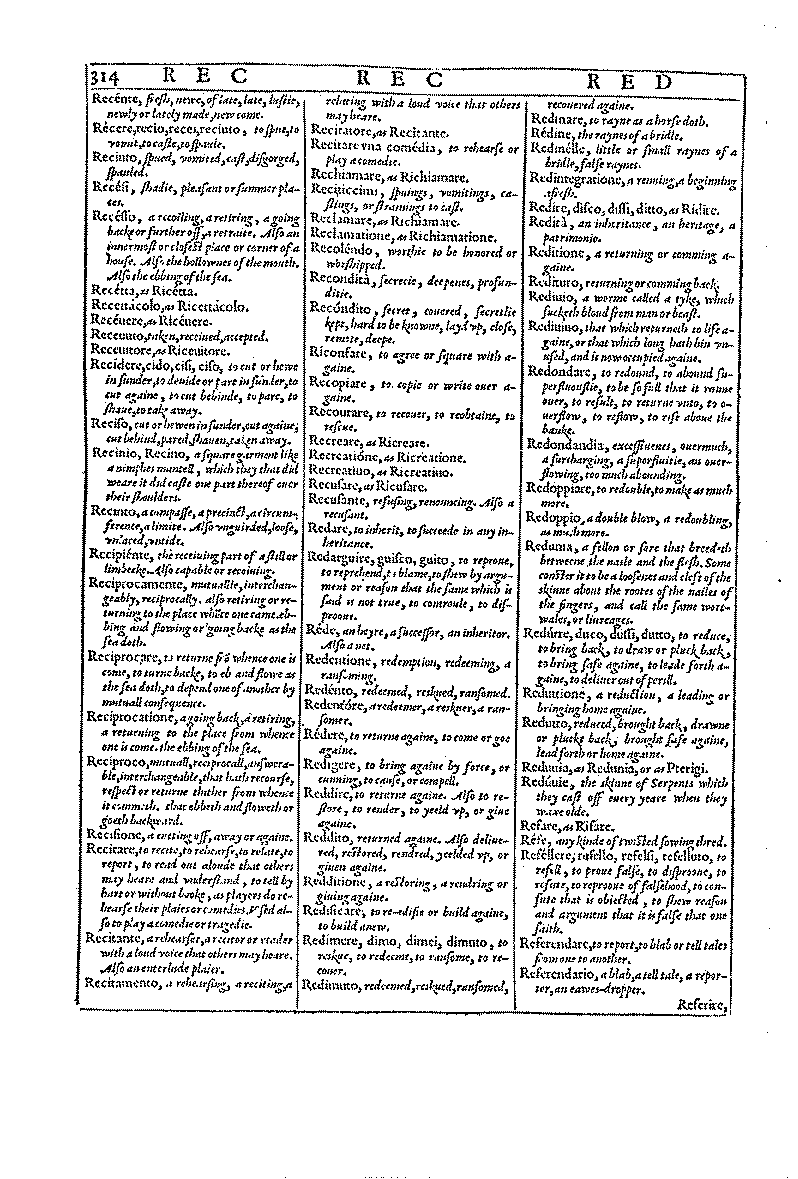 314 REC REC RED
Recénte, fresh, newe, of late, late, lustie,
newly or lately made, new come.
Récere, recio, recei, reciuto, to spue, to
vomit, to caste, to spade.
Reciuto, spued, vomited, cast, disgorged,
spauled.
Recési, shadie, pleasant or summer pla-
ces.
Recésso, a recoiling, a retiring, a going
backe or further off, a retraite. Also an
innermost or closest place or corner of a
house. Also the hollownes of the mouth.
Also the ebbing of the sea.
Recétta, as Ricétta.
Recettácolo, as Ricettácolo.
Recéuere, as Ricéuere.
Receuuto, taken, receiued, accepted.
Receuitore, as Riceuitore.
Recídere, cido, cisi, ciso, to cut or hewe
in sunder, to deuide or part in sunder, to
cut againe, to cut behinde, to pare, to
shaue, to take away.
Reciso, cut or hewen in sunder, cut againe,
cut behind, pared, shauen, taken away.
Recinio, Recino, a square garment like
a nimphes mantell, which they that did
weare it did caste one part thereof ouer
their shoulders.
Recinto, a compasse, a precinct, a circum-
ference, a limite. Also vnguirded, loose,
vnlaced, vntide.
Recipiénte, the receiuing part of a still or
limbecke. Also capable or receiuing.
Reciprocamente, mutuallie, interchan-
geably, reciprocally. also retiring or re-
turning to the place whēce one came. eb-
bing and flowing or going backe as the
sea doth.
Reciprocare, to returne frō whence one is
come, to turne backe, to eb and flowe as
the sea doth, to depend one of another by
mutuall consequence.
Reciprocatione, a going back, a retiring,
a returning to the place from whence
one is come. the ebbing of the sea.
Recíproco, mutuall, reciprocall, answera-
ble, interchangeable, that hath recourse,
respect or returne thither from whence
it commeth. that ebbeth and floweth or
goeth backward.
Recisione, a cutting off, away or againe.
Recitare, to recite, to rehearse, to relate, to
report, to read out aloude that others
may heare and vnderstand, to tell by
hart or without booke, as players do re-
hearse their plaies or comedies. Vsed al-
so to play a comedie or tragedie.
Recitante, a rehearser, a recitor or reader
with a loud voice that others may heare.
Also an enterlude plaier.
Recitamento, a rehearsing, a reciting, a
relating with a loud voice that others
may heare.
Recitatore, as Recitante.
Recitare vna comédia, to rehearse or
play a comedie.
Rechiamare, as Richiamare.
Reciticcini, spuings, vomitings, ca-
stings, or straynings to cast.
Reclamare, as Richiamare.
Reclamatione, as Richiamatione.
Recoléndo, worthie to be honored or
worshipped.
Recondità, secrecie, deepenes, profun-
ditie.
Recóndito, secret, couered, secretlie
kept, hard to be knowne, layd vp, close,
remote, deepe.
Riconfare, to agree or square with a-
gaine.
Recopiare, to copie or write ouer a-
gaine.
Recourare, to recouer, to reobtaine, to
rescue.
Recreare, as Ricreare.
Recreatióne, as Ricreatione.
Recreatiuo, as Ricreatiuo.
Recusare, as Ricusare.
Recusante, refusing, renouncing. Also a
recusant.
Redare, to inherit, to succeede in any in-
heritance.
Redarguire, guisco, guito, to reproue,
to reprehend, to blame, to shew by argu-
ment or reason that the same which is
said is not true, to controule, to dis-
prooue.
Réde, an heyre, a successor, an inheritor.
Also a net.
Redentione, redemption, redeeming, a
ransoming.
Redénto, redeemed, reskued, ransomed.
Redentóre, a redeemer, a reskuer, a ran-
somer.
Rédere, to returne againe, to come or goe
againe.
Redigere, to bring againe by force, or
cunning, to cause, or compell.
Reddire, to returne againe. Also to re-
store, to render, to yeeld vp, or giue
againe.
Reddito, returned againe. Also deliue-
red, restored, rendred, yeelded vp, or
giuen againe.
Redditione, a restoring, a rendring or
giuing againe.
Redificare, to re-edifie or build againe,
to build anew.
Redimere, dimo, dimei, dimuto, to
reskue, to redeeme, to ransome, to re-
couer.
Redimuto, redeemed, reskued, ransomed,
recouered againe.
Redinare, to rayne as a horse doth.
Rédine, the raynes of a bridle.
Redinélle, little or small raynes of a
bridle, false raynes.
Redintegratione, a renuing, a beginning
afresh.
Redíre, disco, dissi, ditto, as Ridire.
Redità, an inheritance, an heritage, a
patrimonie.
Reditione, a returning or comming a-
gaine.
Redituro, returning or comming back.
Rediuio, a worme called a tyke, which
sucketh bloud from man or beast.
Rediuiuo, that which returneth to life a-
gaine, or that which long hath bin vn-
used, and is now occupied againe.
Redondare, to redound, to abound su-
perfluouslie, to be so full that it runne
ouer, to result, to returne vnto, to o-
uerflow, to reflow, to rise aboue the
banke.
Redondandia, excessiuenes, ouermuch,
a surcharging, a superfluitie, an ouer-
flowing, too much abounding.
Redoppiare, to redouble, to make as much
more.
Redoppio, a double blow, a redoubling,
as much more.
Redunia, a fellon or sore that breedeth
betweene the naile and the flesh. Some
conster it to be a loosenes and cleft of the
skinne about the rootes of the nailes of
the fingers, and call the same wort-
wales, or liureages.
Redúrre, duco, dussi, dutto, to reduce,
to bring back, to draw or pluck back,
to bring safe againe, to leade forth a-
gaine, to deliuer out of perill.
Reduttione, a reduction, a leading or
bringing home againe.
Redutto, reduced, brought back, drawne
or pluckt back, brought safe againe,
lead forth or home againe.
Reduuia, as Redunia, or as Pterigi.
Redúuie, the skinne of Serpents which
they cast off euery yeare when they
waxe olde.
Refare, as Rifare.
Réfe, any kinde of twisted sowing thred.
Reféllere, refello, refelsi, refelluto, to
refell, to proue false, to disprooue, to
refute, to reprooue of falsehood, to con-
fute that is obiected, to shew reason
and argument that it is false that one
saith.
Referendare, to report, to blab or tell tales
from one to another.
Referendario, a blab, a tell tale, a repor-
ter, an eawes-dropper.
Referire,